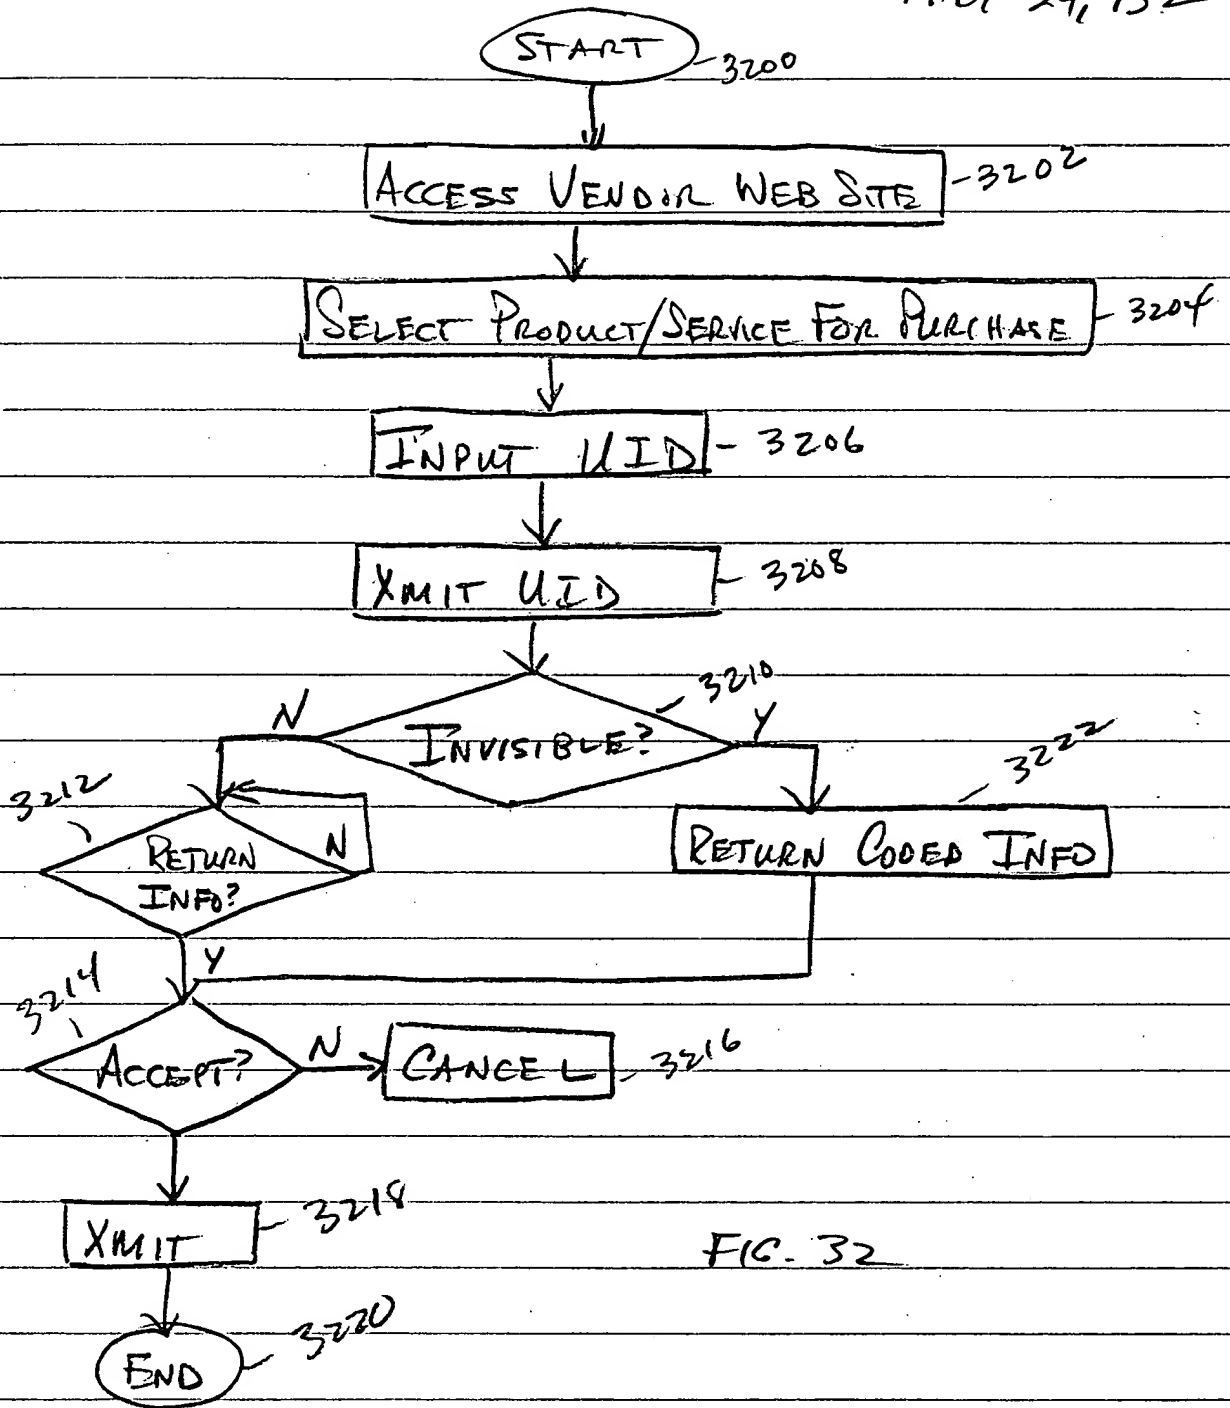 START
3200
ACCESS VENDOR WEB SITE
3202
SELECT PRODUCT/SERVICE FOR PURCHASE
3204
INPUT UID
3206
XMIT UID
3208
INVISIBLE?
3210
N
Y
3212
RETURN
INFO?
N
3222
RETURN CODED INFO
Y
3214
ACCEPT?
N
CANCEL
3216
XMIT
3218
FIG. 32
END
3220